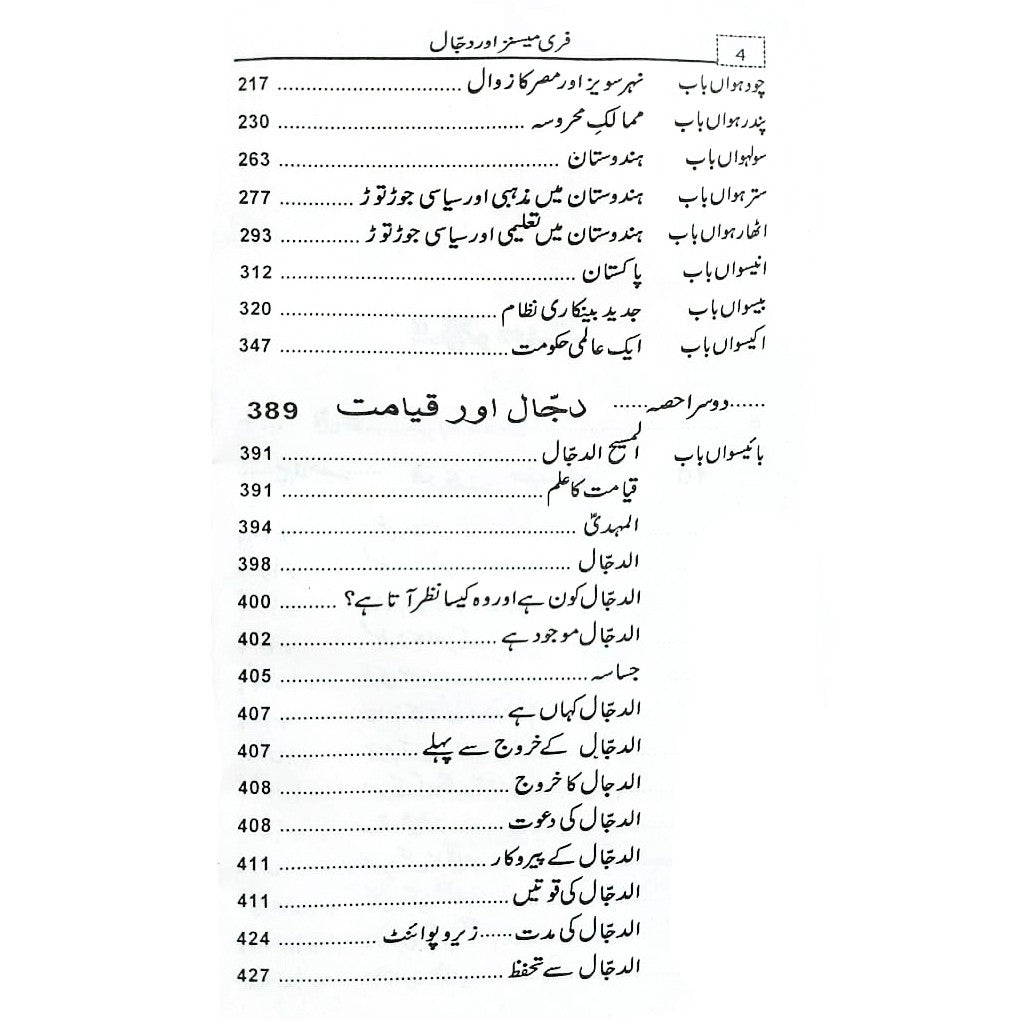 4 فری میسنز اور دجّال
چودہواں باب نہر سویز اور مصر کا زوال ............ 217
پندرہواں باب ممالکِ محروسہ ............ 230
سولہواں باب ہندوستان ............ 263
سترہواں باب ہندوستان میں مذہبی اور سیاسی جوڑ توڑ ............ 277
اٹھارہواں باب ہندوستان میں تعلیمی اور سیاسی جوڑ توڑ ............ 293
انیسواں باب پاکستان ............ 312
بیسواں باب جدید بینکاری نظام ............ 320
اکیسواں باب ایک عالمی حکومت ............ 347
......دوسرا حصہ...... دجّال اور قیامت 389
بائیسواں باب المسیح الدجّال ............ 391
قیامت کا علم ............ 391
المہدیؓ ............ 394
الدجّال ............ 398
الدجّال کون ہے اور وہ کیسا نظر آتا ہے؟ .......... 400
الدجّال موجود ہے ............ 402
جساسہ ............ 405
الدجّال کہاں ہے ............ 407
الدجّال کے خروج سے پہلے ............ 407
الدجال کا خروج ............ 408
الدجّال کی دعوت ............ 408
الدجّال کے پیروکار ............ 411
الدجّال کی قوتیں ............ 411
الدجّال کی مدت......زیرو پوائنٹ ............ 424
الدجّال سے تحفظ ............ 427